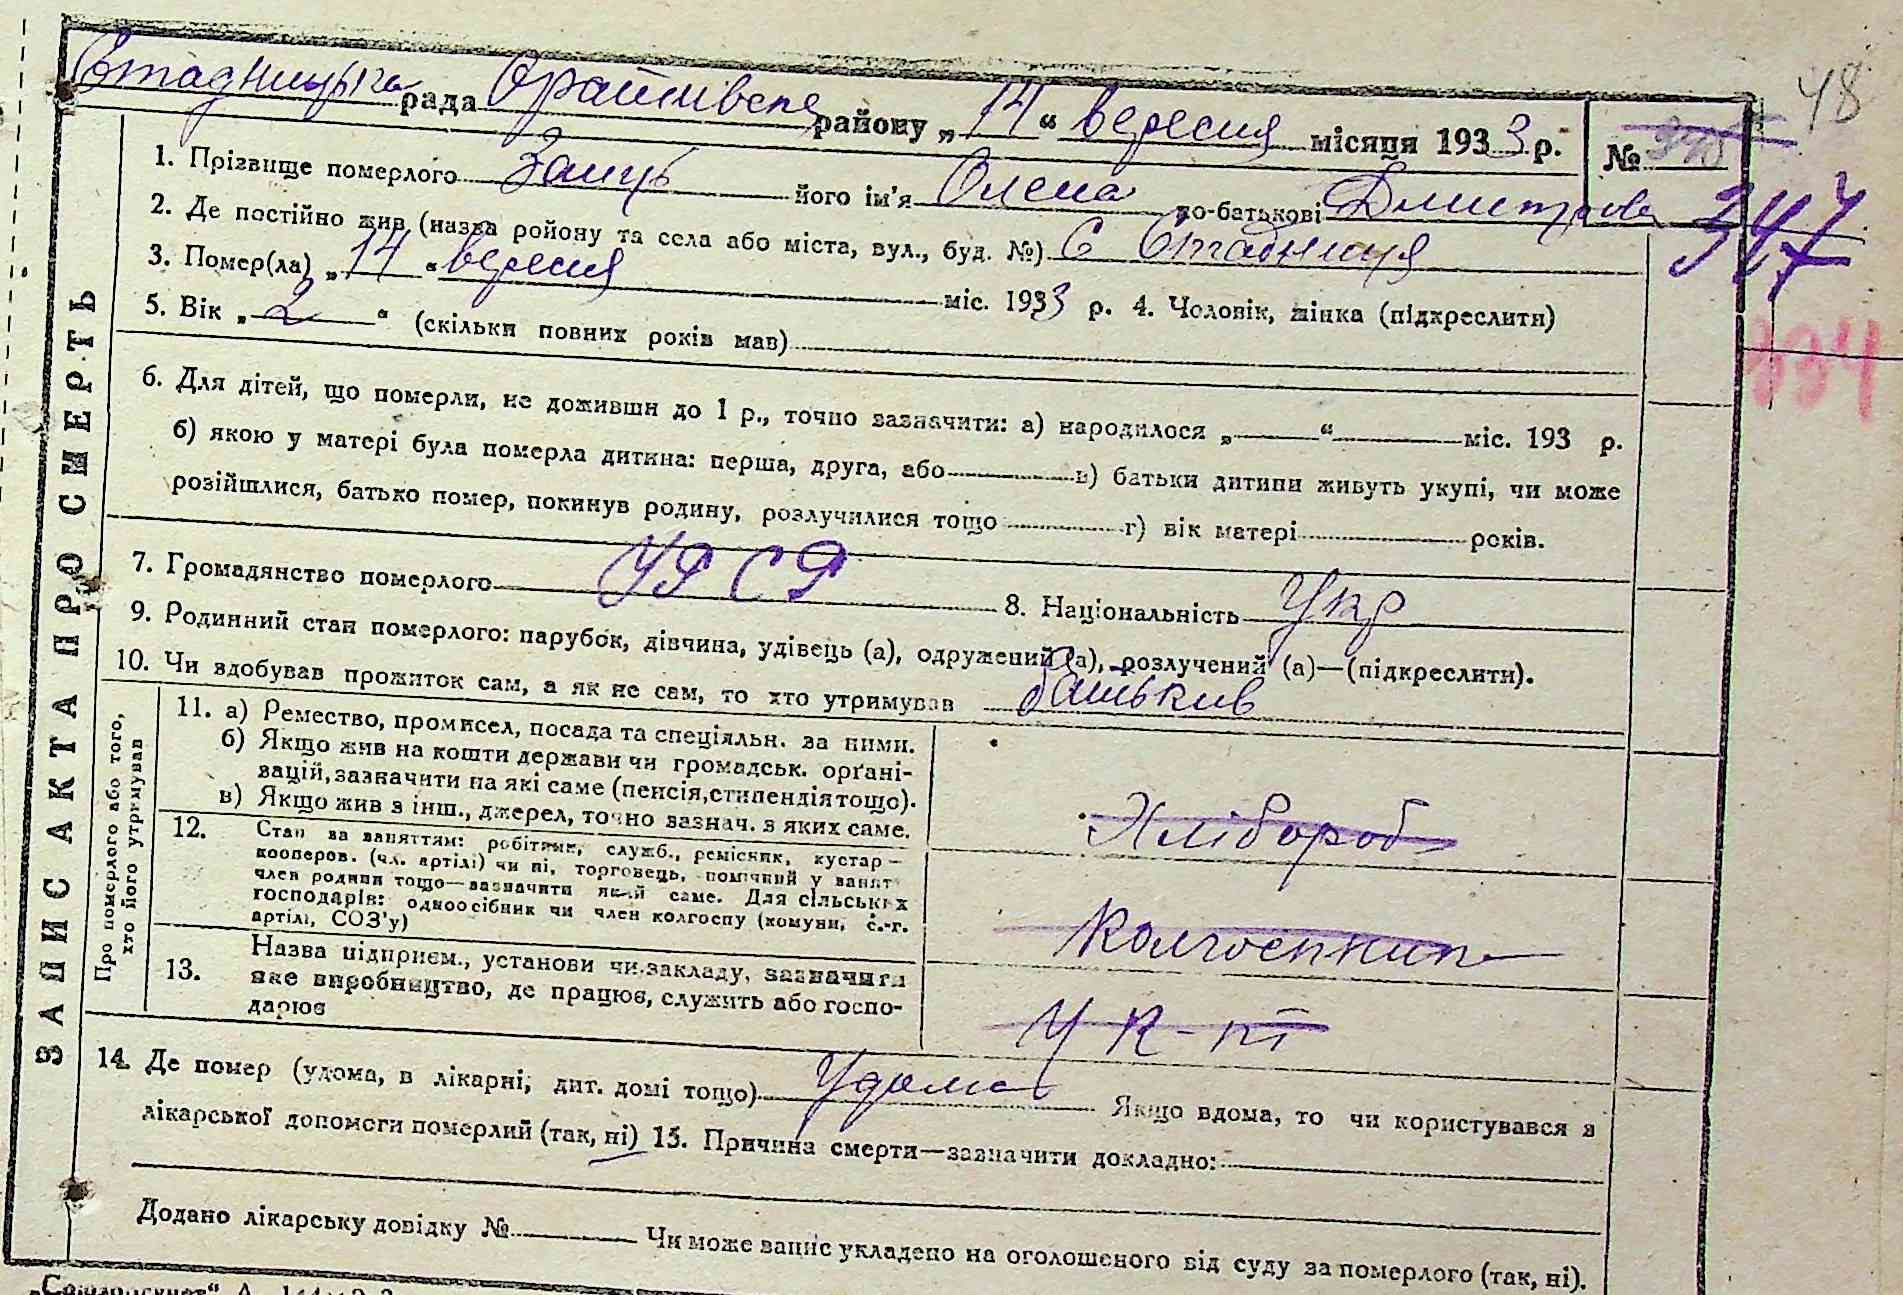 48
Стадницька рада Оратівське району „14“ вересня місяця 1933 р. №
1. Прізвище померлого Заяць його ім'я Олена по-батькові Дмитрова 347
2. Де постійно жив (назва ройону та села або міста, вул., буд. №) С Стадниця
3. Помер(ла) „14“ вересня міс. 1933 р. 4. Чоловік, жінка (підкреслити)
5. Вік „2“ (скільки повних років мав)
334
6. Для дітей, що померли, не доживши до 1 р., точно зазначити: а) народилося „ “ міс. 193 р.
б) якою у матері була померла дитина: перша, друга, або в) батьки дитини живуть укупі, чи може
розійшлися, батько помер, покинув родину, розлучилися тощо г) вік матері років.
7. Громадянство померлого УРСР 8. Національність Укр
9. Родинний стан померлого: парубок, дівчина, удівець (а), одружений (а), розлучений (а)—(підкреслити).
10. Чи здобував прожиток сам, а як не сам, то хто утримував батьків
ЗАПИС АКТА ПРО СМЕРТЬ
Про померлого або того,
хто його утримував
11. а) Ремество, промисел, посада та спеціяльн. за ними.
б) Якщо жив на кошти держави чи громадськ. органі-
зацій, зазначити на які саме (пенсія, стипендія тощо).
в) Якщо жив з інш., джерел, точно зазнач. з яких саме.
Хлібороб
12. Стан за заняттям: робітник, служб., ремісник, кустар—
кооперов. (чл. артілі) чи ні, торговець, помічний у занят
член родини тощо—зазначити який саме. Для сільських
господарів: одноосібник чи член колгоспу (комуни, с.-г.
артілі, СОЗ'у)
Колгоспник
13. Назва підприєм., установи чи закладу, зазначити
яке виробництво, де працює, служить або госпо-
дарює
У к-пі
14. Де помер (удома, в лікарні, дит. домі тощо) Удома Якщо вдома, то чи користувався з
лікарської допомоги померлий (так, ні) 15. Причина смерти—зазначити докладно:
Додано лікарську довідку № Чи може запис укладено на оголошеного від суду за померлого (так, ні).